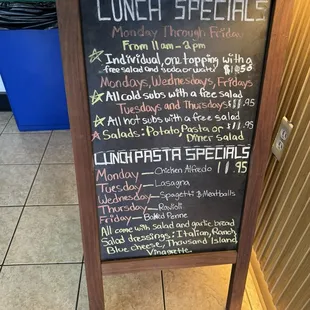 LUNCH SPECIALS
Monday Through Friday
From 11am - 2pm
Individual, one topping with a
free salad and soda or water
Mondays, Wednesdays, Fridays
All cold subs with a free salad
Tuesdays and Thursdays $11.95
All hot subs with a free salad
Salads: Potato, Pasta or
Dinner salad
LUNCH PASTA SPECIALS
11.95
Monday - Chicken Alfredo
Tuesday - Lasagna
Wednesday - Spagetti & Meatballs
Thursday - Ravioli
Friday - Baked Penne
All come with salad and garlic bread
Salad dressings: Italian, Ranch,
Blue cheese, Thousand Island
Vinagrette